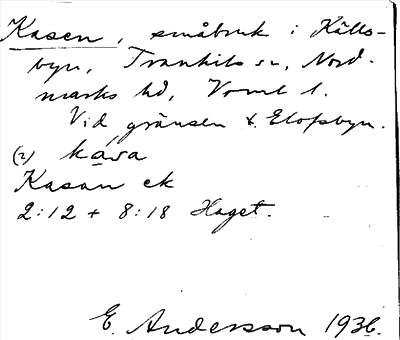 Kasen, småbruk i Källs-
byn, Trankils sn, Nord-
marks hd, Vrml l.
Vid gränsen t. Elofsbyn.
(2) kasa
Kasan ek
2:12 + 8:18 Haget.
E. Andersson 1936.